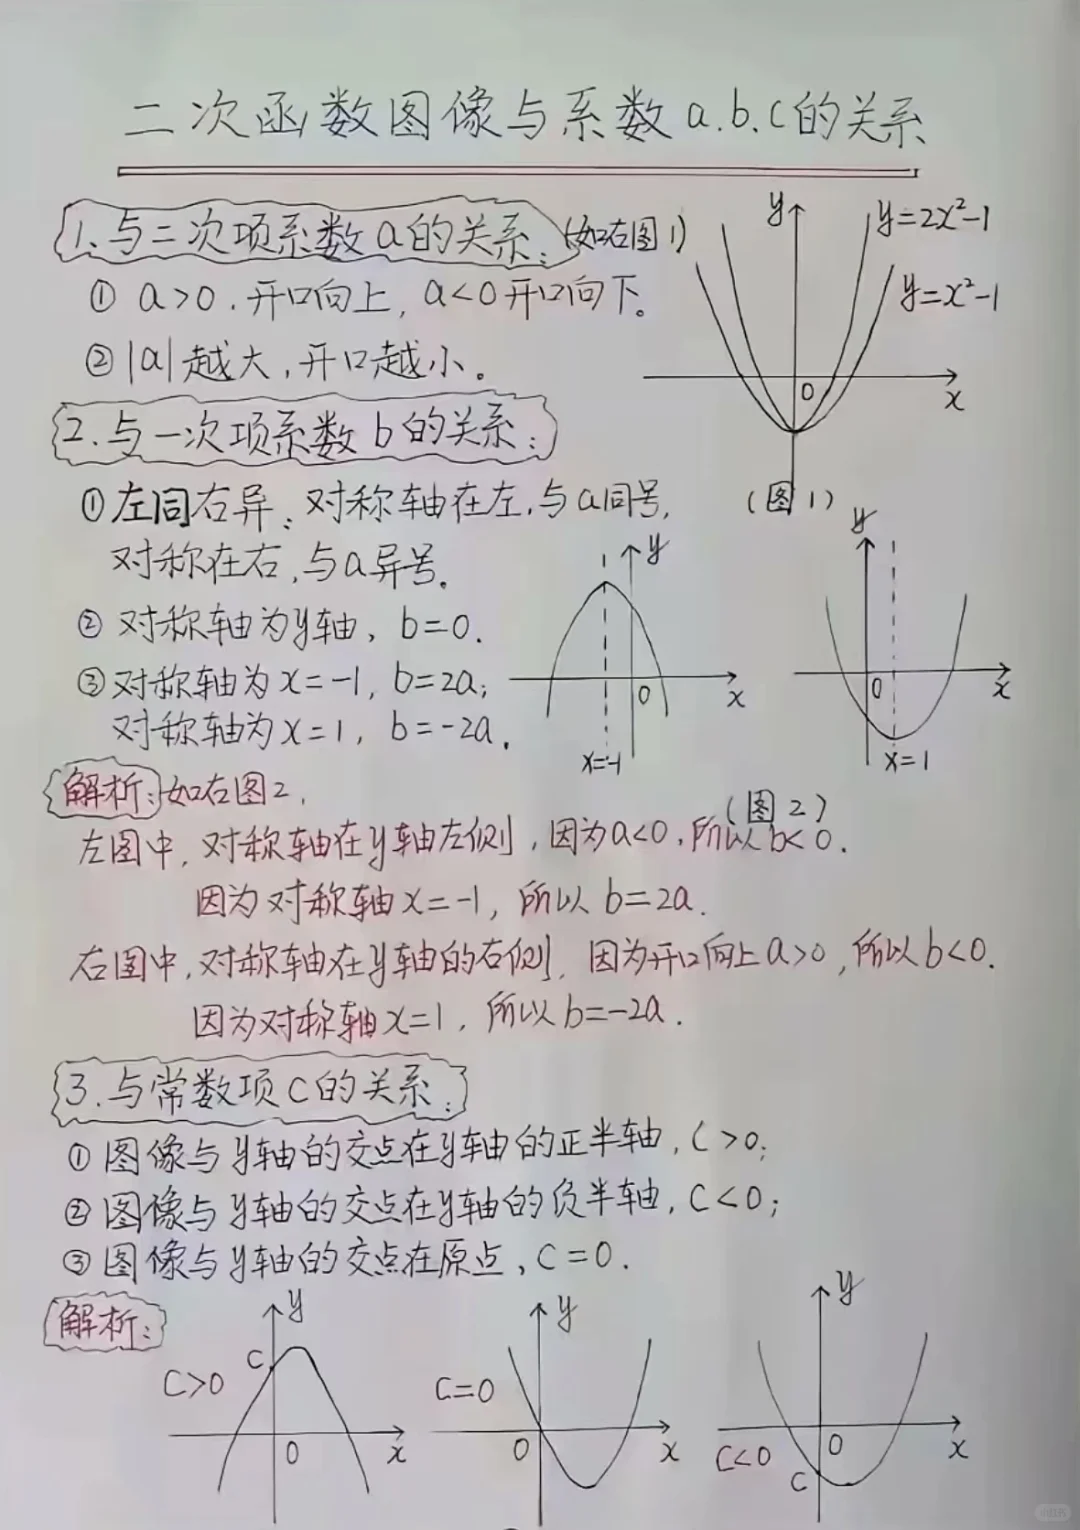 二次函数图像与系数a.b.c的关系
1.与二次项系数a的关系:(如右图1)
① a>0.开口向上, a<0开口向下。
②|a|越大,开口越小。
y
y=2x²-1
y=x²-1
0
x
(图1)
2.与一次项系数b的关系:
①左同右异:对称轴在左,与a同号,
对称在右,与a异号。
②对称轴为y轴, b=0.
③对称轴为x=-1, b=2a;
对称轴为x=1, b=-2a.
y
0
x
x=-1
y
0
x
x=1
(图2)
解析:如右图2,
左图中,对称轴在y轴左侧,因为a<0,所以b<0.
因为对称轴x=-1,所以b=2a.
右图中,对称轴在y轴的右侧,因为开口向上a>0,所以b<0.
因为对称轴x=1,所以b=-2a.
3.与常数项C的关系:
①图像与y轴的交点在y轴的正半轴,C>0;
②图像与y轴的交点在y轴的负半轴,C<0;
③图像与y轴的交点在原点,C=0.
解析:
y
C
C>0
0
x
y
C=0
0
x
y
C<0
0
C
x
小红书